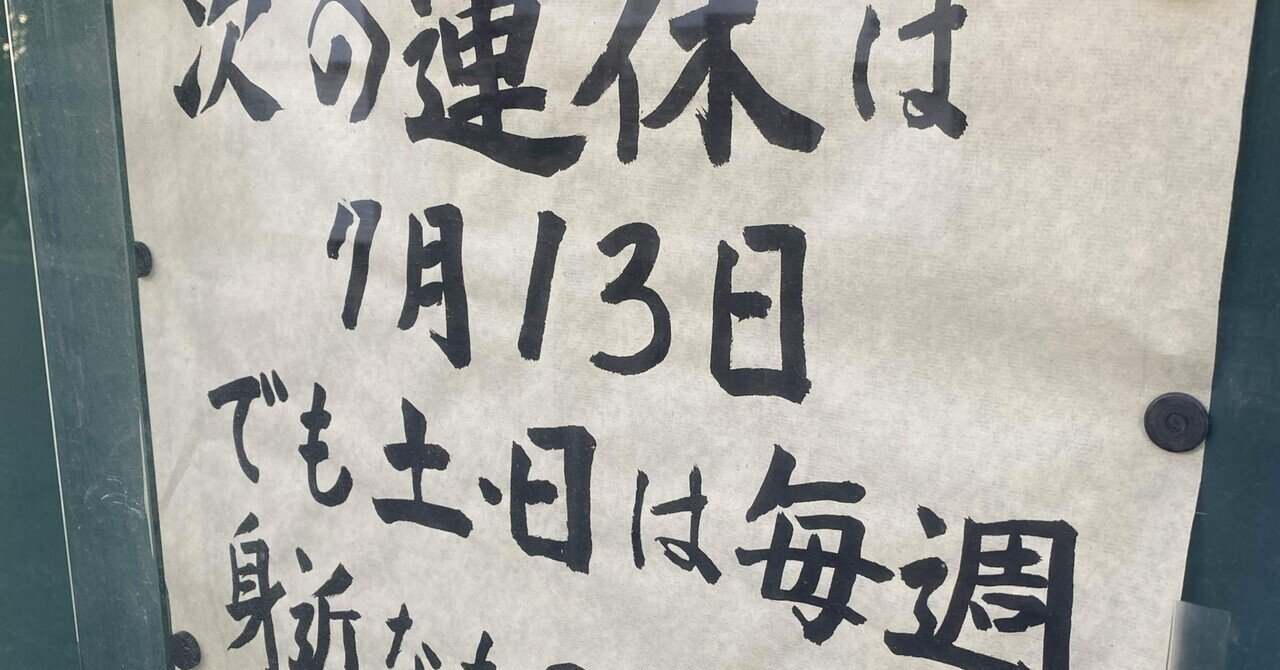 次の連休は
7月13日
でも土・日は毎週
身近なもの